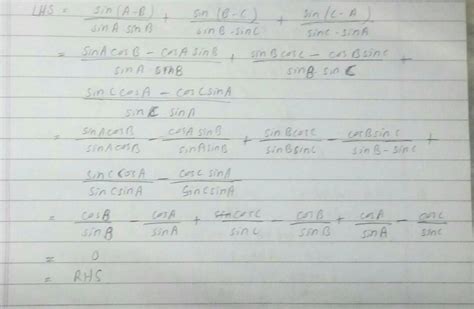 LHS = sin(A-B)/sinA·sinB + sin(B-C)/sinB·sinC + sin(C-A)/sinC·sinA
= sinA cosB - cosA sinB/sinA·sinB + sinB cosC - cosB sinC/sinB·sinC +
sinC cosA - cosC sinA/sinC sinA
= sinA cosB/sinA cosB - cosA sinB/sinA sinB + sinB cosC/sinB sinC - cosB sinC/sinB-sinC +
sinC cosA/sinC sinA - cosC sinA/sinC sinA
= cosB/sinB - cosA/sinA + cosC/sinC - cosB/sinB + cosA/sinA - cosC/sinC
= 0
= RHS